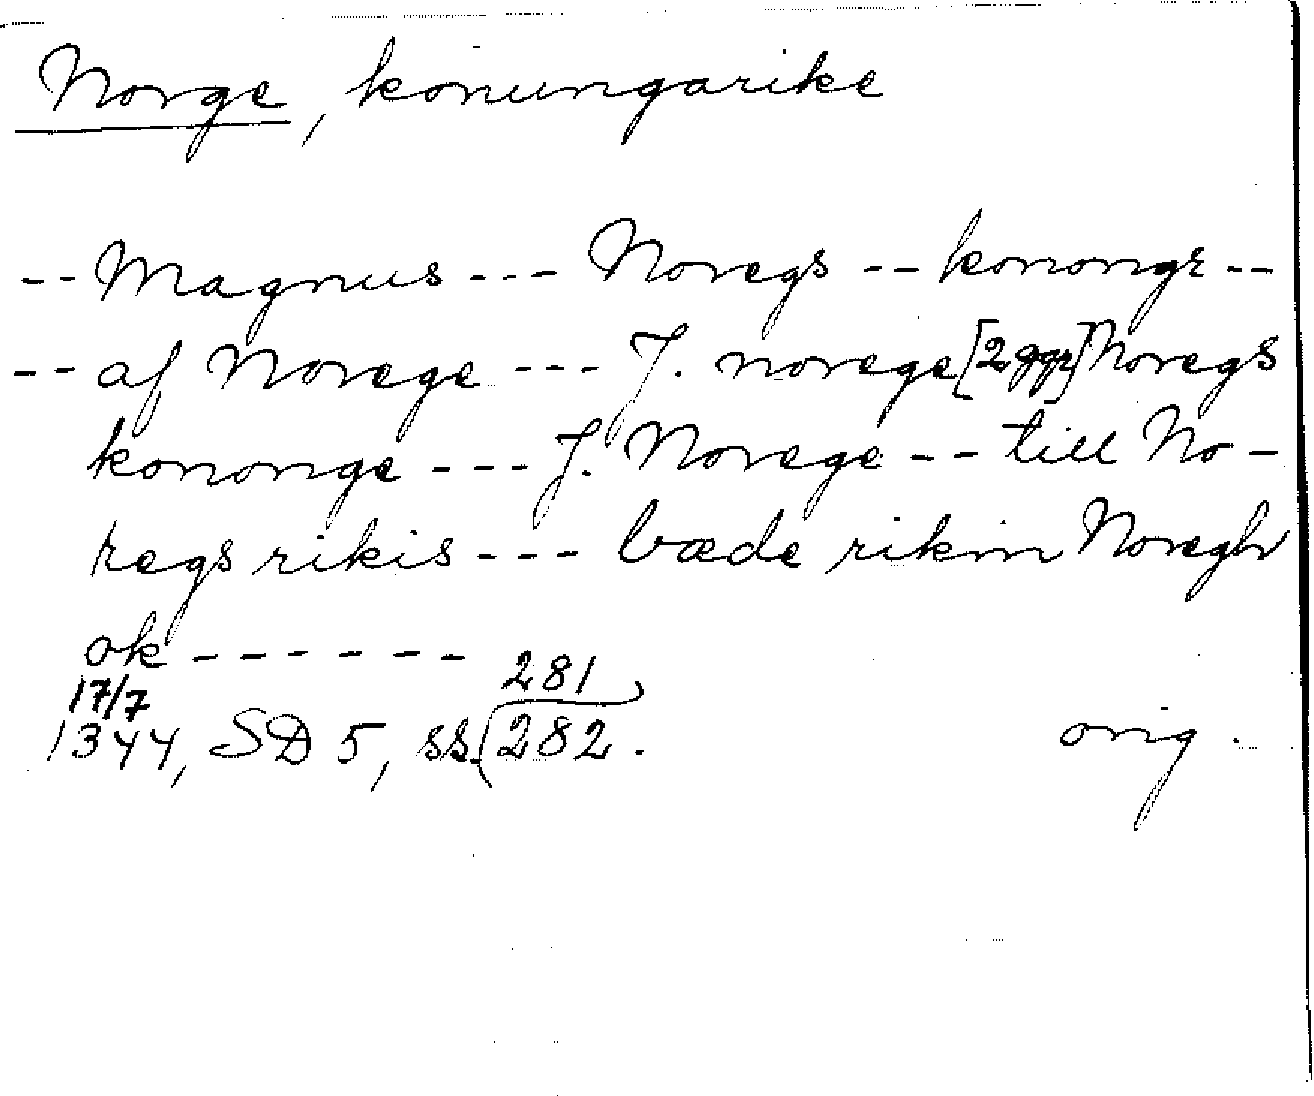 Norge, konungarike
-- Magnus --- Noregs -- konongr --
-- af Norege --- J. norege [2 ggr] Noregs
kononge --- J. Norege -- till No-
regs rikis --- bæde rikin Noregh
ok ------
17/7 281
1344, SD 5, ss. 282. orig.